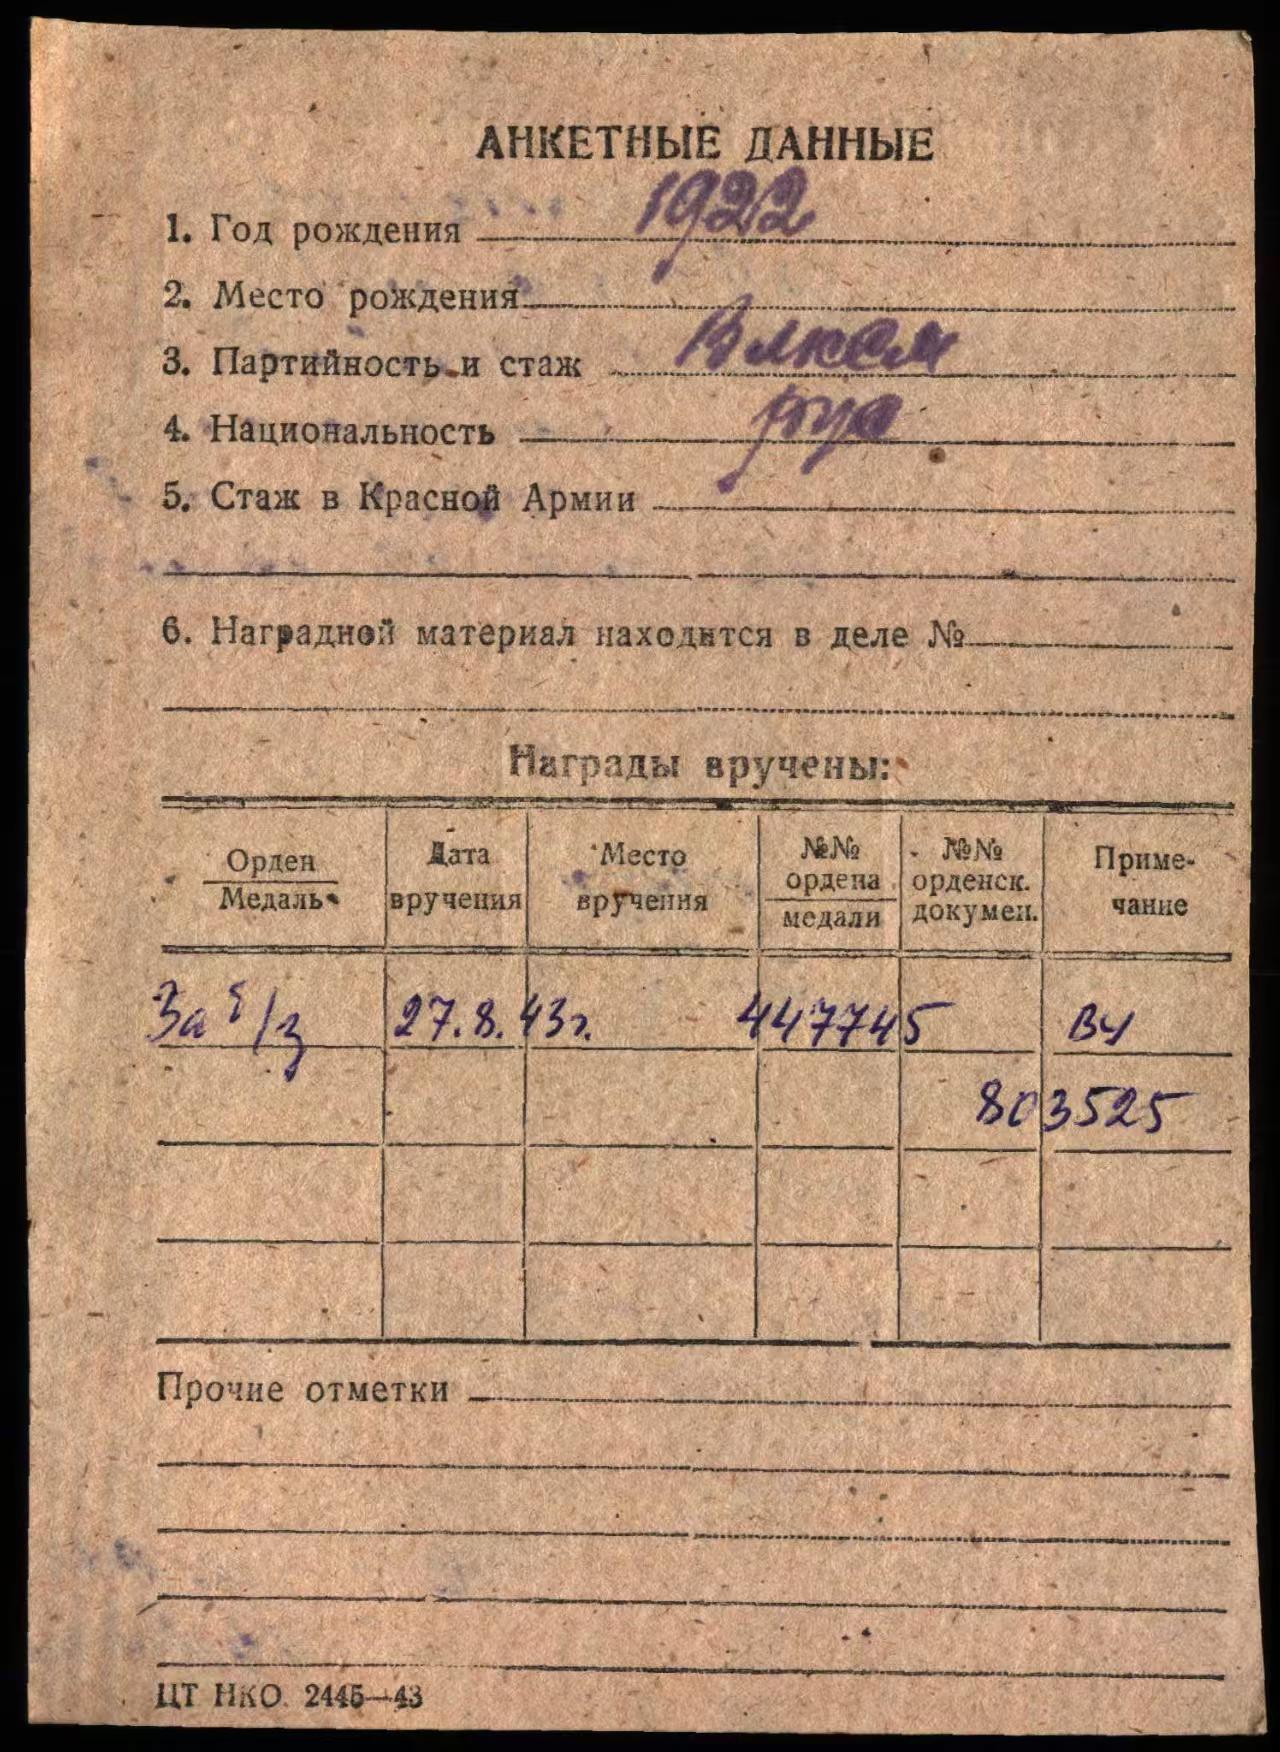 АНКЕТНЫЕ ДАННЫЕ
1. Год рождения 1922
2. Место рождения
3. Партийность и стаж Влксм
4. Национальность рус
5. Стаж в Красной Армии
6. Наградной материал находится в деле №
Награды вручены:
Орден
Медаль
Дата
вручения
Место
вручения
№№
ордена
медали
№№
орденск.
докумен.
Приме-
чание
За б/з 27.8.43г. 447745 В4
803525
Прочие отметки
ЦТ НКО. 2445—43